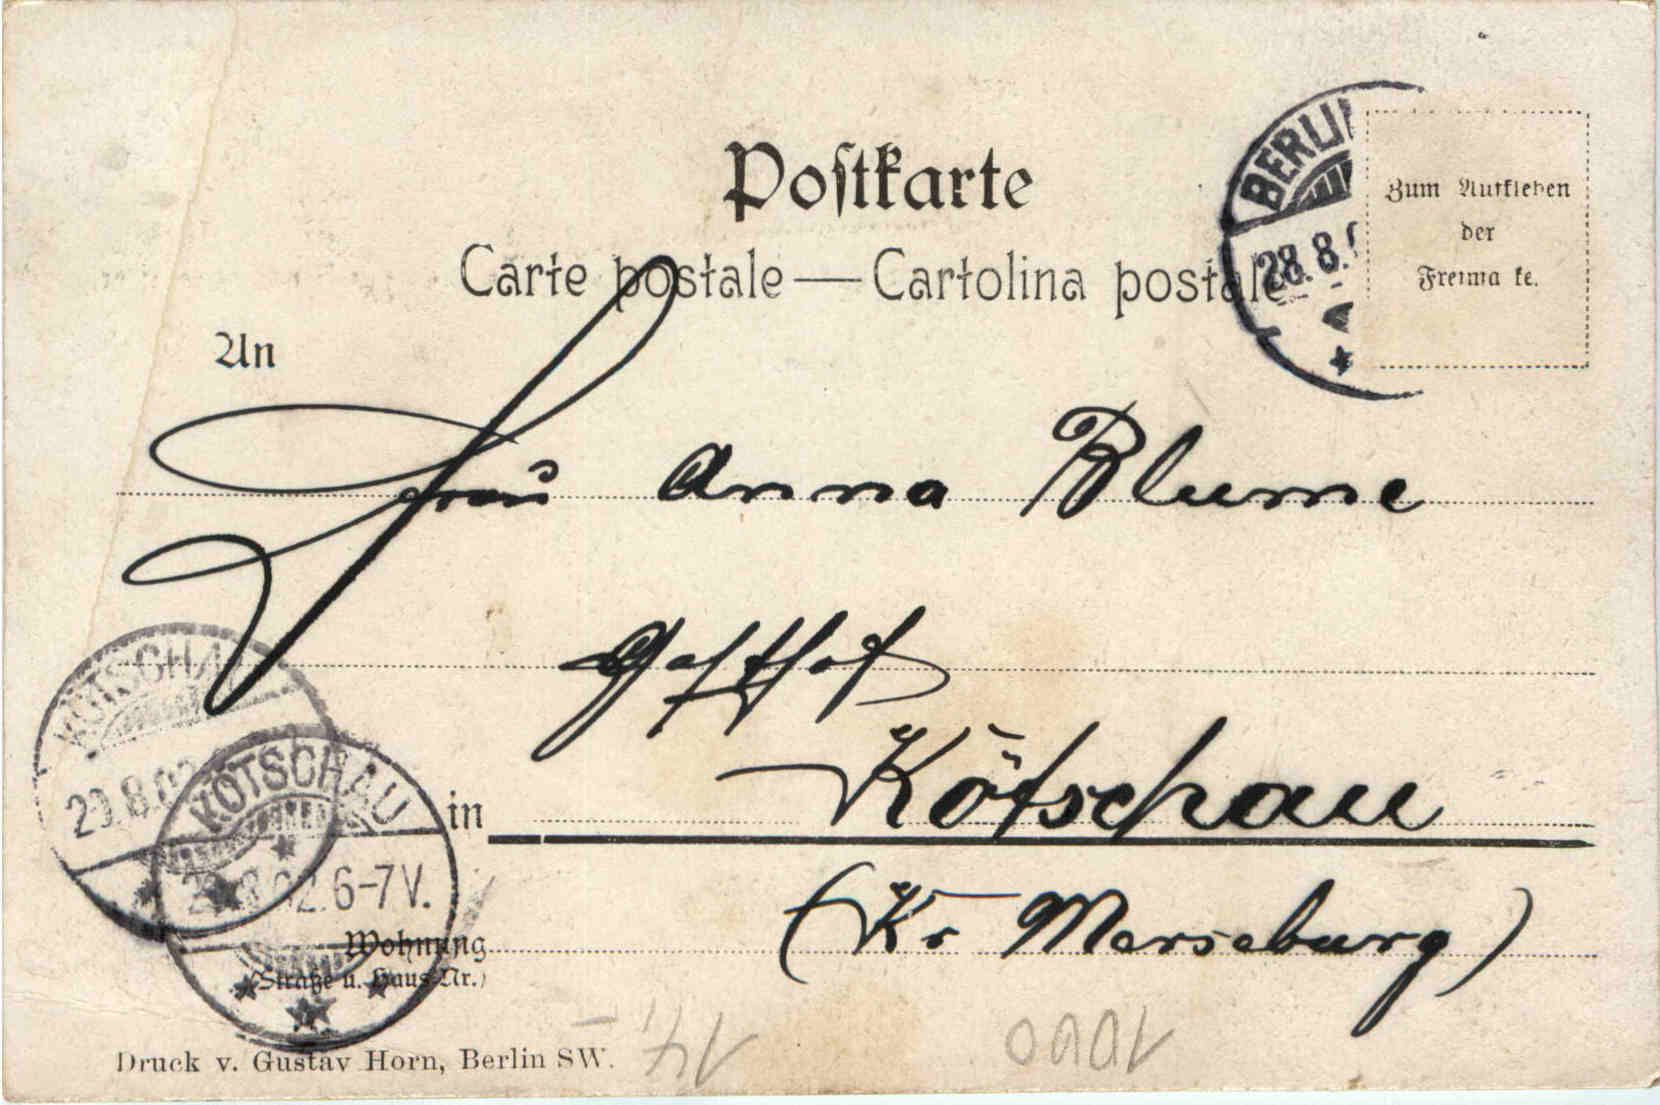 Postkarte
Carte postale — Cartolina postale
BERLIN
28.8.
Zum Aufkleben
der
Freimarke.
An
Frau Anna Blume
Gasthof
in Kötschau
(Kr Merseburg)
KÖTSCHAU
29.8.02
KÖTSCHAU
29.8.02.6-7V.
Wohnung
(Straße u. Haus-Nr.)
Druck v. Gustav Horn, Berlin SW.